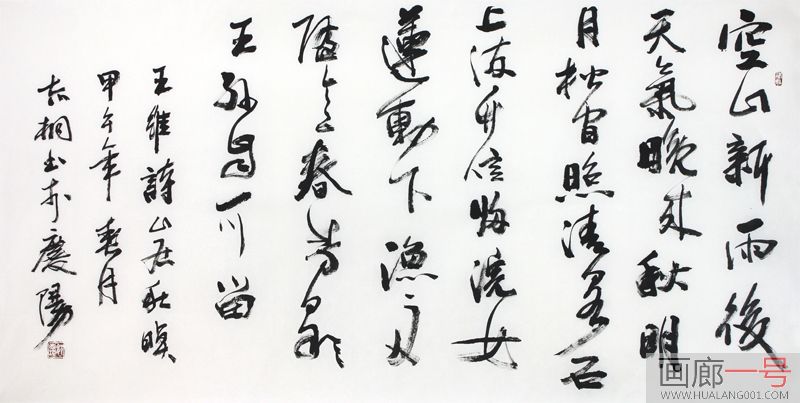 空山新雨後
天氣晚來秋明
月松間照清泉石
上流竹喧歸浣女
蓮動下漁舟
隨意春芳歇
王孫自可留
王維詩山居秋暝
甲午年春月
桐書於慶陽
画廊一号
WWW.HUALANG001.COM